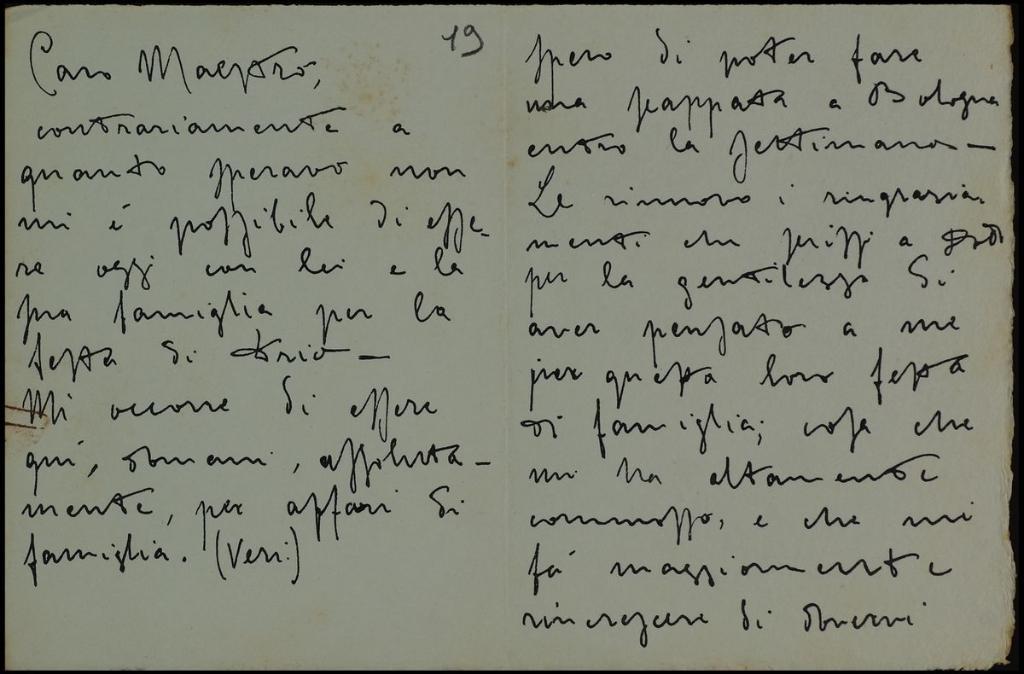 19
Caro Maestro,
contrariamente a
quanto speravo non
mi é possibile di esse-
re oggi con lei e la
sua famiglia per la
festa di Ario —
Mi occorre di essere
qui, domani, assoluta-
mente, per affari di
famiglia. (Veri!)
spero di poter fare
una scappata a Bologna
entro la settimana —
Le rinnovo i ringrazia-
menti che scrissi a
per la gentilezza di
aver pensato a me
per questa loro festa
di famiglia; cosa che
mi ha altamente
commosso, e che mi
fá maggiormente
rincrescere di dovervi